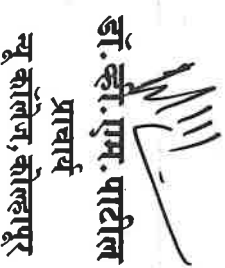 डॉ. व्ही.एम. पाटील
प्राचार्य
न्यू कॉलेज, कोल्हापूर